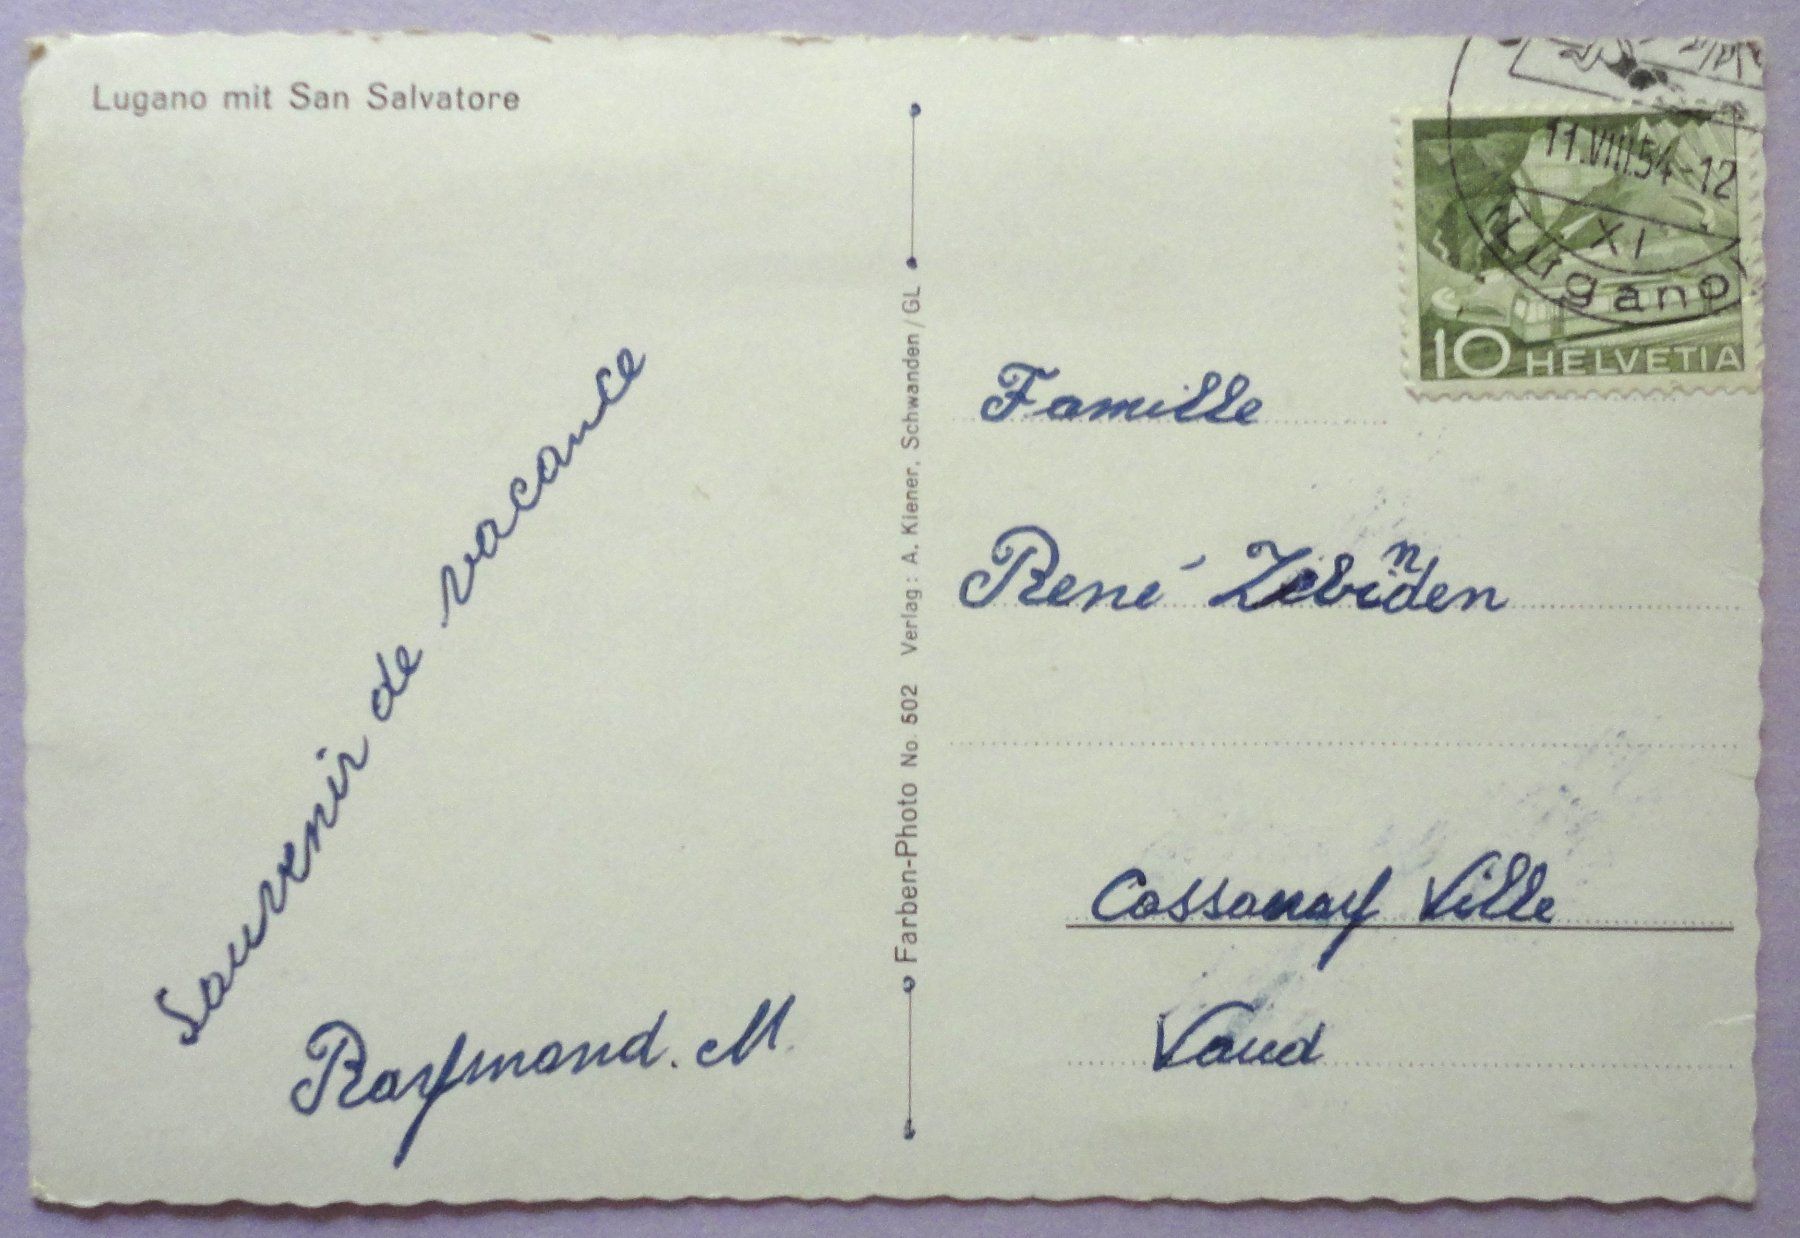 Lugano mit San Salvatore
Souvenir de vacance
Raymond. M.
Farben-Photo No. 502 Verlag: A. Kiener, Schwanden/GL
11.VIII.54-12
XI
Lugano
10 HELVETIA
Famille
René Zebinden
Cossonay Ville
Vaud